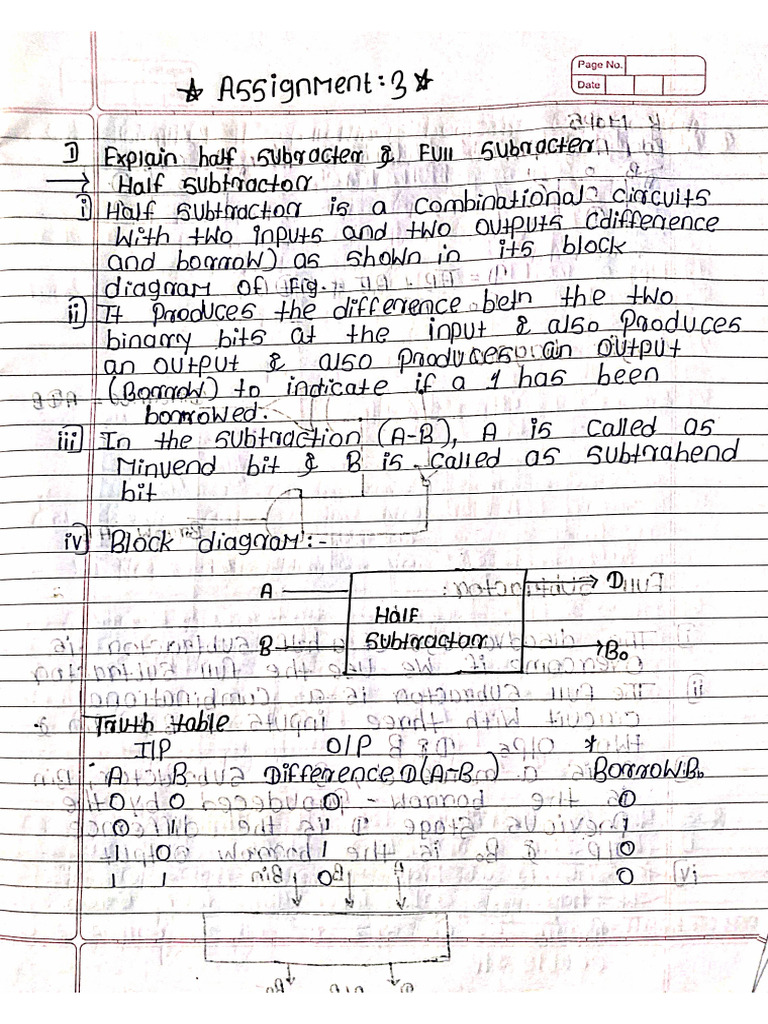 ☆ Assignment: 3 ☆
Page No.
Date
1) Explain half subracter & Full subracter
→ Half subtractor
i) Half subtractor is a combinational circuits
with two inputs and two outputs (difference
and borrow) as shown in its block
diagram of fig.
ii) It produces the difference betn the two
binary bits at the input & also produces
an output & also produces an output
(Borrow) to indicate if a 1 has been
borrowed.
iii) In the subtraction (A-B), A is called as
Minvend bit & B is called as subtrahend
bit
iv) Block diagram:-
A
D
Half
Subtractor
B
B₀
Truth table
I/P O/P
A B Difference D(A-B) Borrow B₀
0 0 0 0
0 1 1 1
1 0 1 0
1 1 0 0